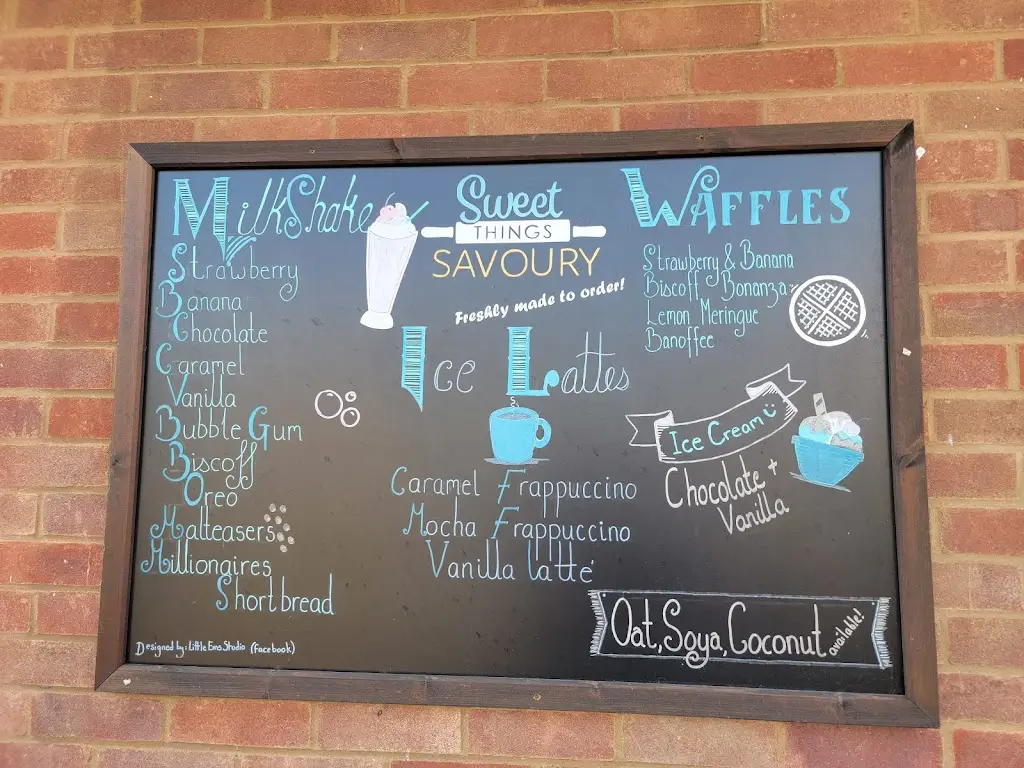 MilkShake
Strawberry
Banana
Chocolate
Caramel
Vanilla
Bubble Gum
Biscoff
Oreo
Malteasers
Millionaires
Shortbread
Designed by: Little Ems Studio (Facebook)
Sweet
THINGS
SAVOURY
Freshly made to order!
Ice Lattes
Caramel Frappuccino
Mocha Frappuccino
Vanilla latte
WAFFLES
Strawberry & Banana
Biscoff Bonanza
Lemon Meringue
Banoffee
Ice Cream
Chocolate +
Vanilla
Oat, Soya, Coconut available!